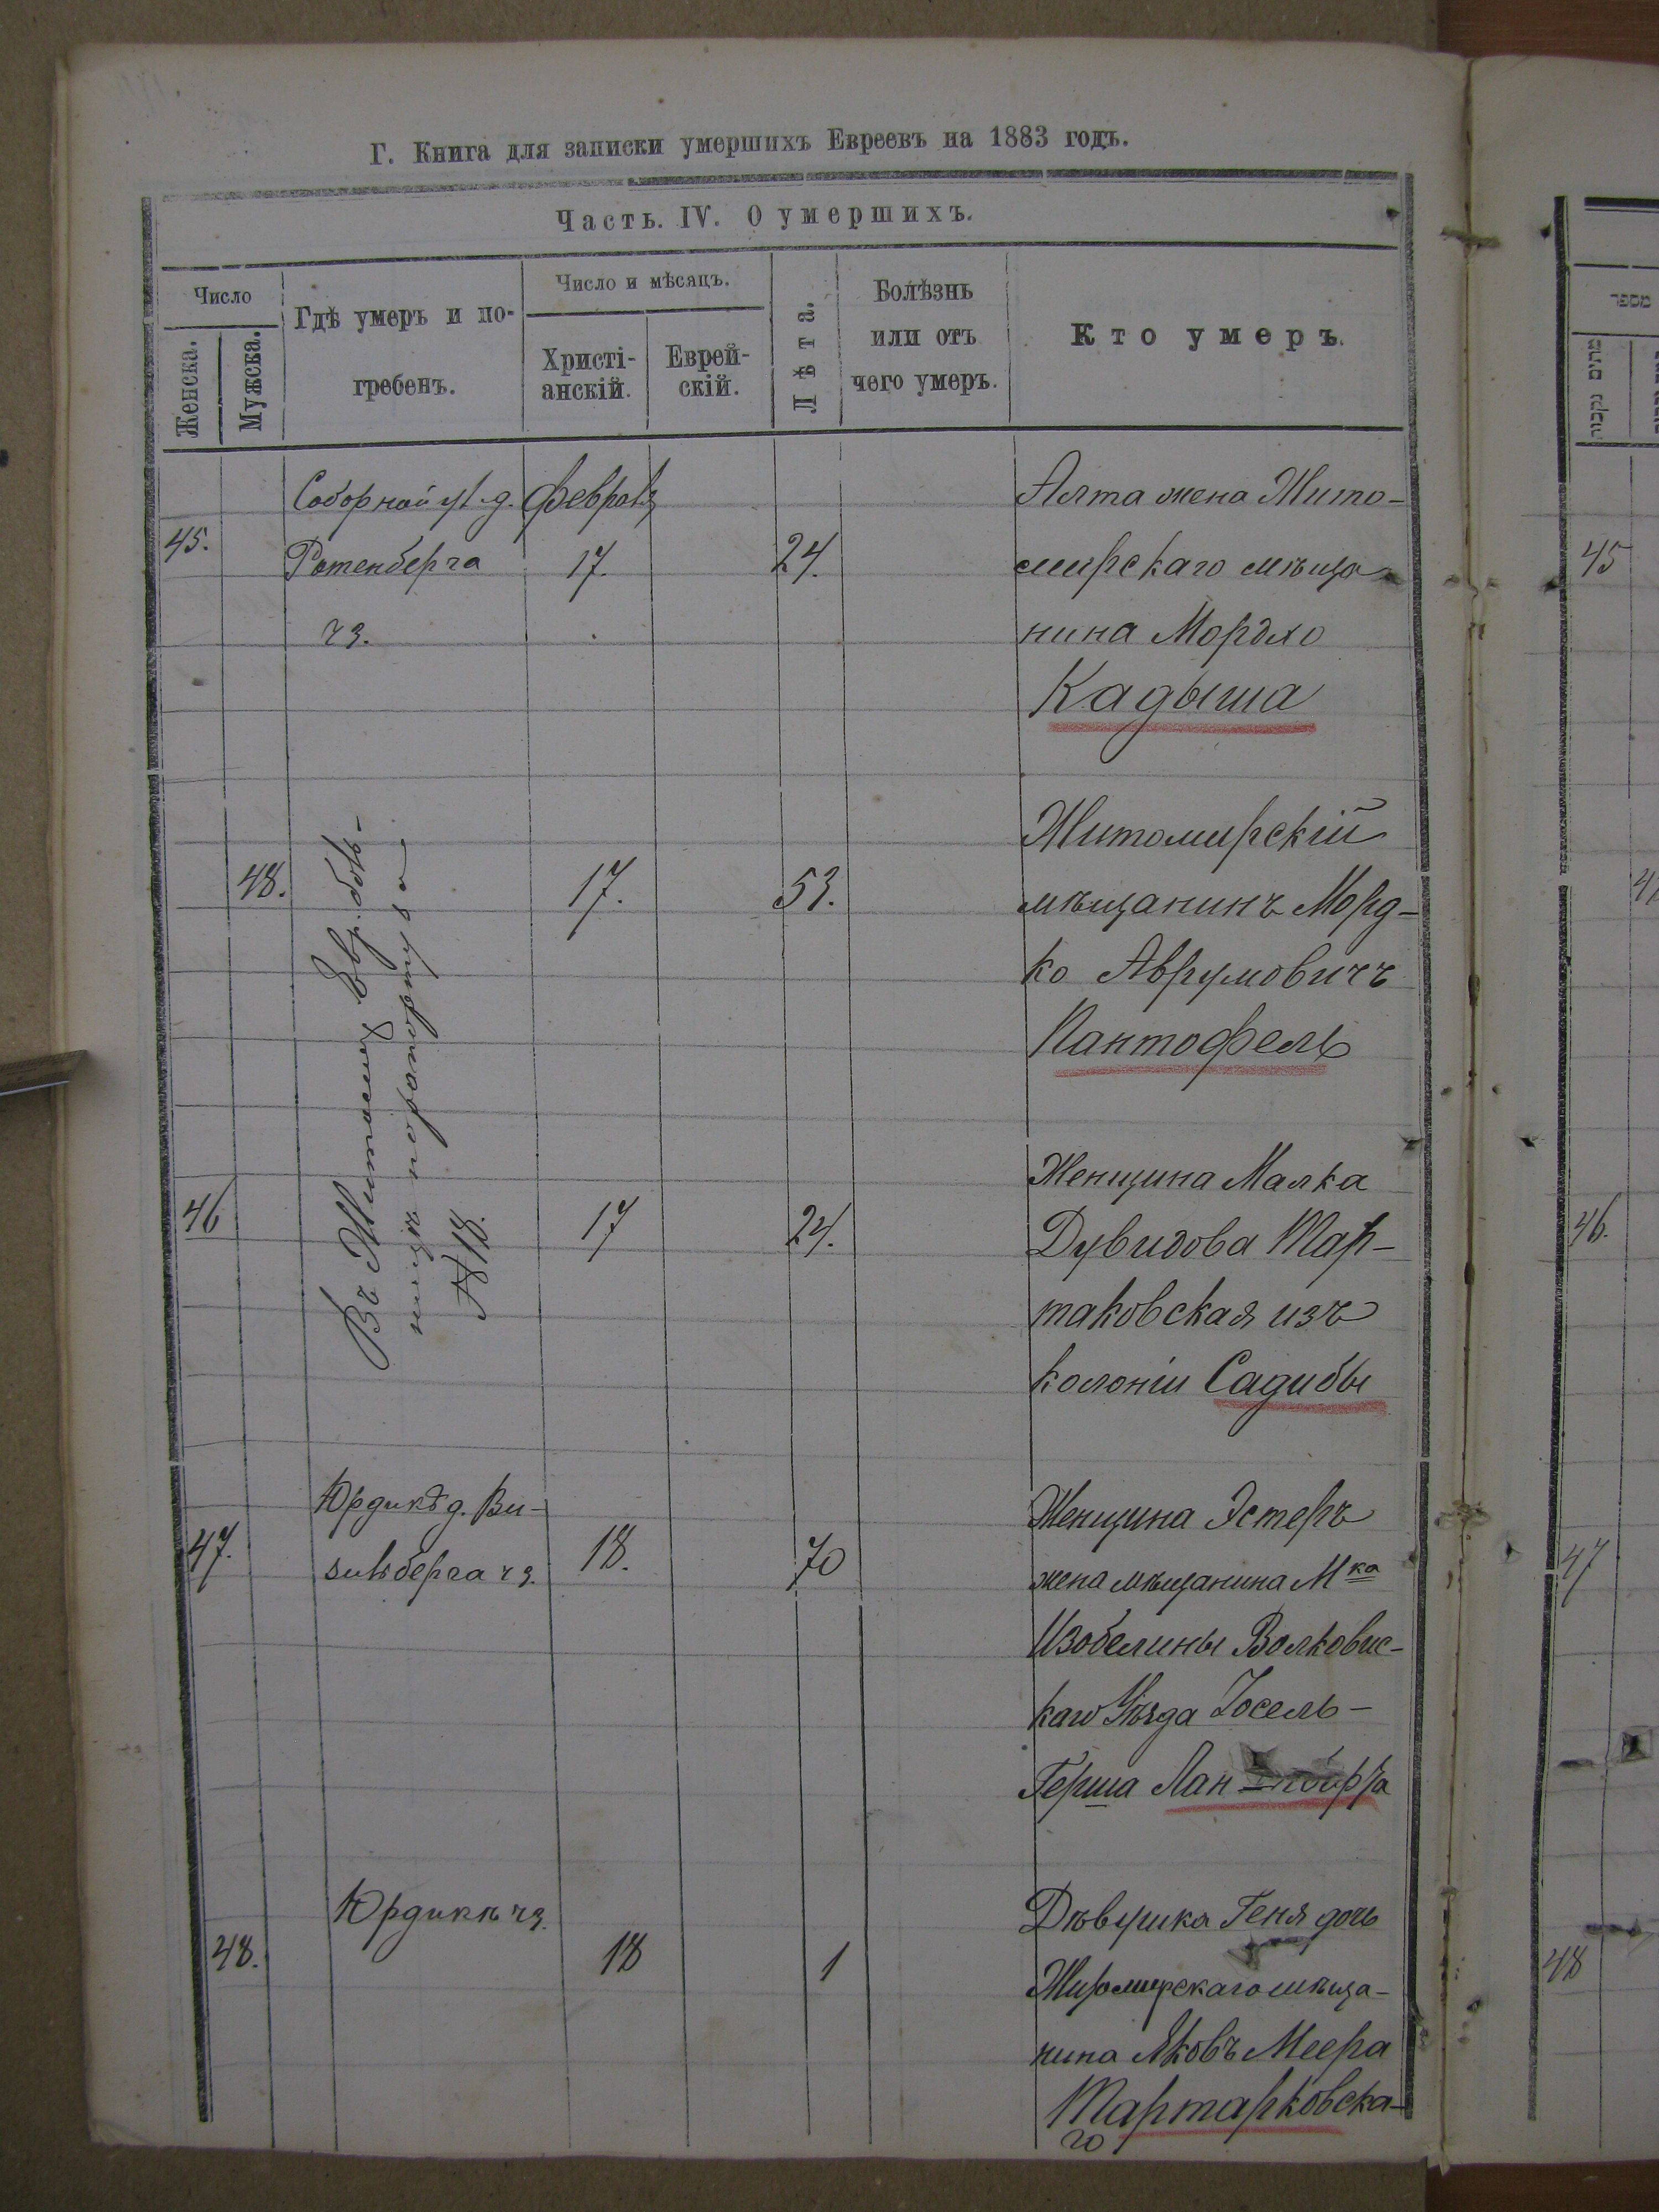 Г. Книга для записки умершихъ Евреевъ на 1883 годъ.
Часть. IV. О умершихъ.
Число
Женска.
Мужска.
Гдѣ умеръ и по-
гребенъ.
Число и мѣсяцъ.
Христі-
анскій.
Еврей-
скій.
Лѣта.
Болѣзнь
или отъ
чего умеръ.
Кто умеръ.
45.
Соборной ул. д.
Ротенберга
чз.
февраля
17.
24.
Алта жена Жито-
мирскаго мѣща
нина Мордко
Кадыша
48.
Въ Житомир Евр. боль-
ницѣ по рапорту за
№ 18.
17.
53.
Житомирскій
мѣщанинъ Морд-
ко Аврумовичъ
Пантофель
46
17
24.
Женщина Малка
Дувидова Тар-
таковская изъ
колоніи Садибы
47.
д. Ви-
зельберга чз.
18.
70
Женщина Эстеръ
жена мѣщанина Мка
Изобелины Волковис-
каго Уѣзда Іосель-
Герша
48.
чз.
18
1
Дѣвушка Геня дочь
Житомирскаго мѣща-
нина Яковъ Меера
Тартарковска-
го
45
46.
47
48